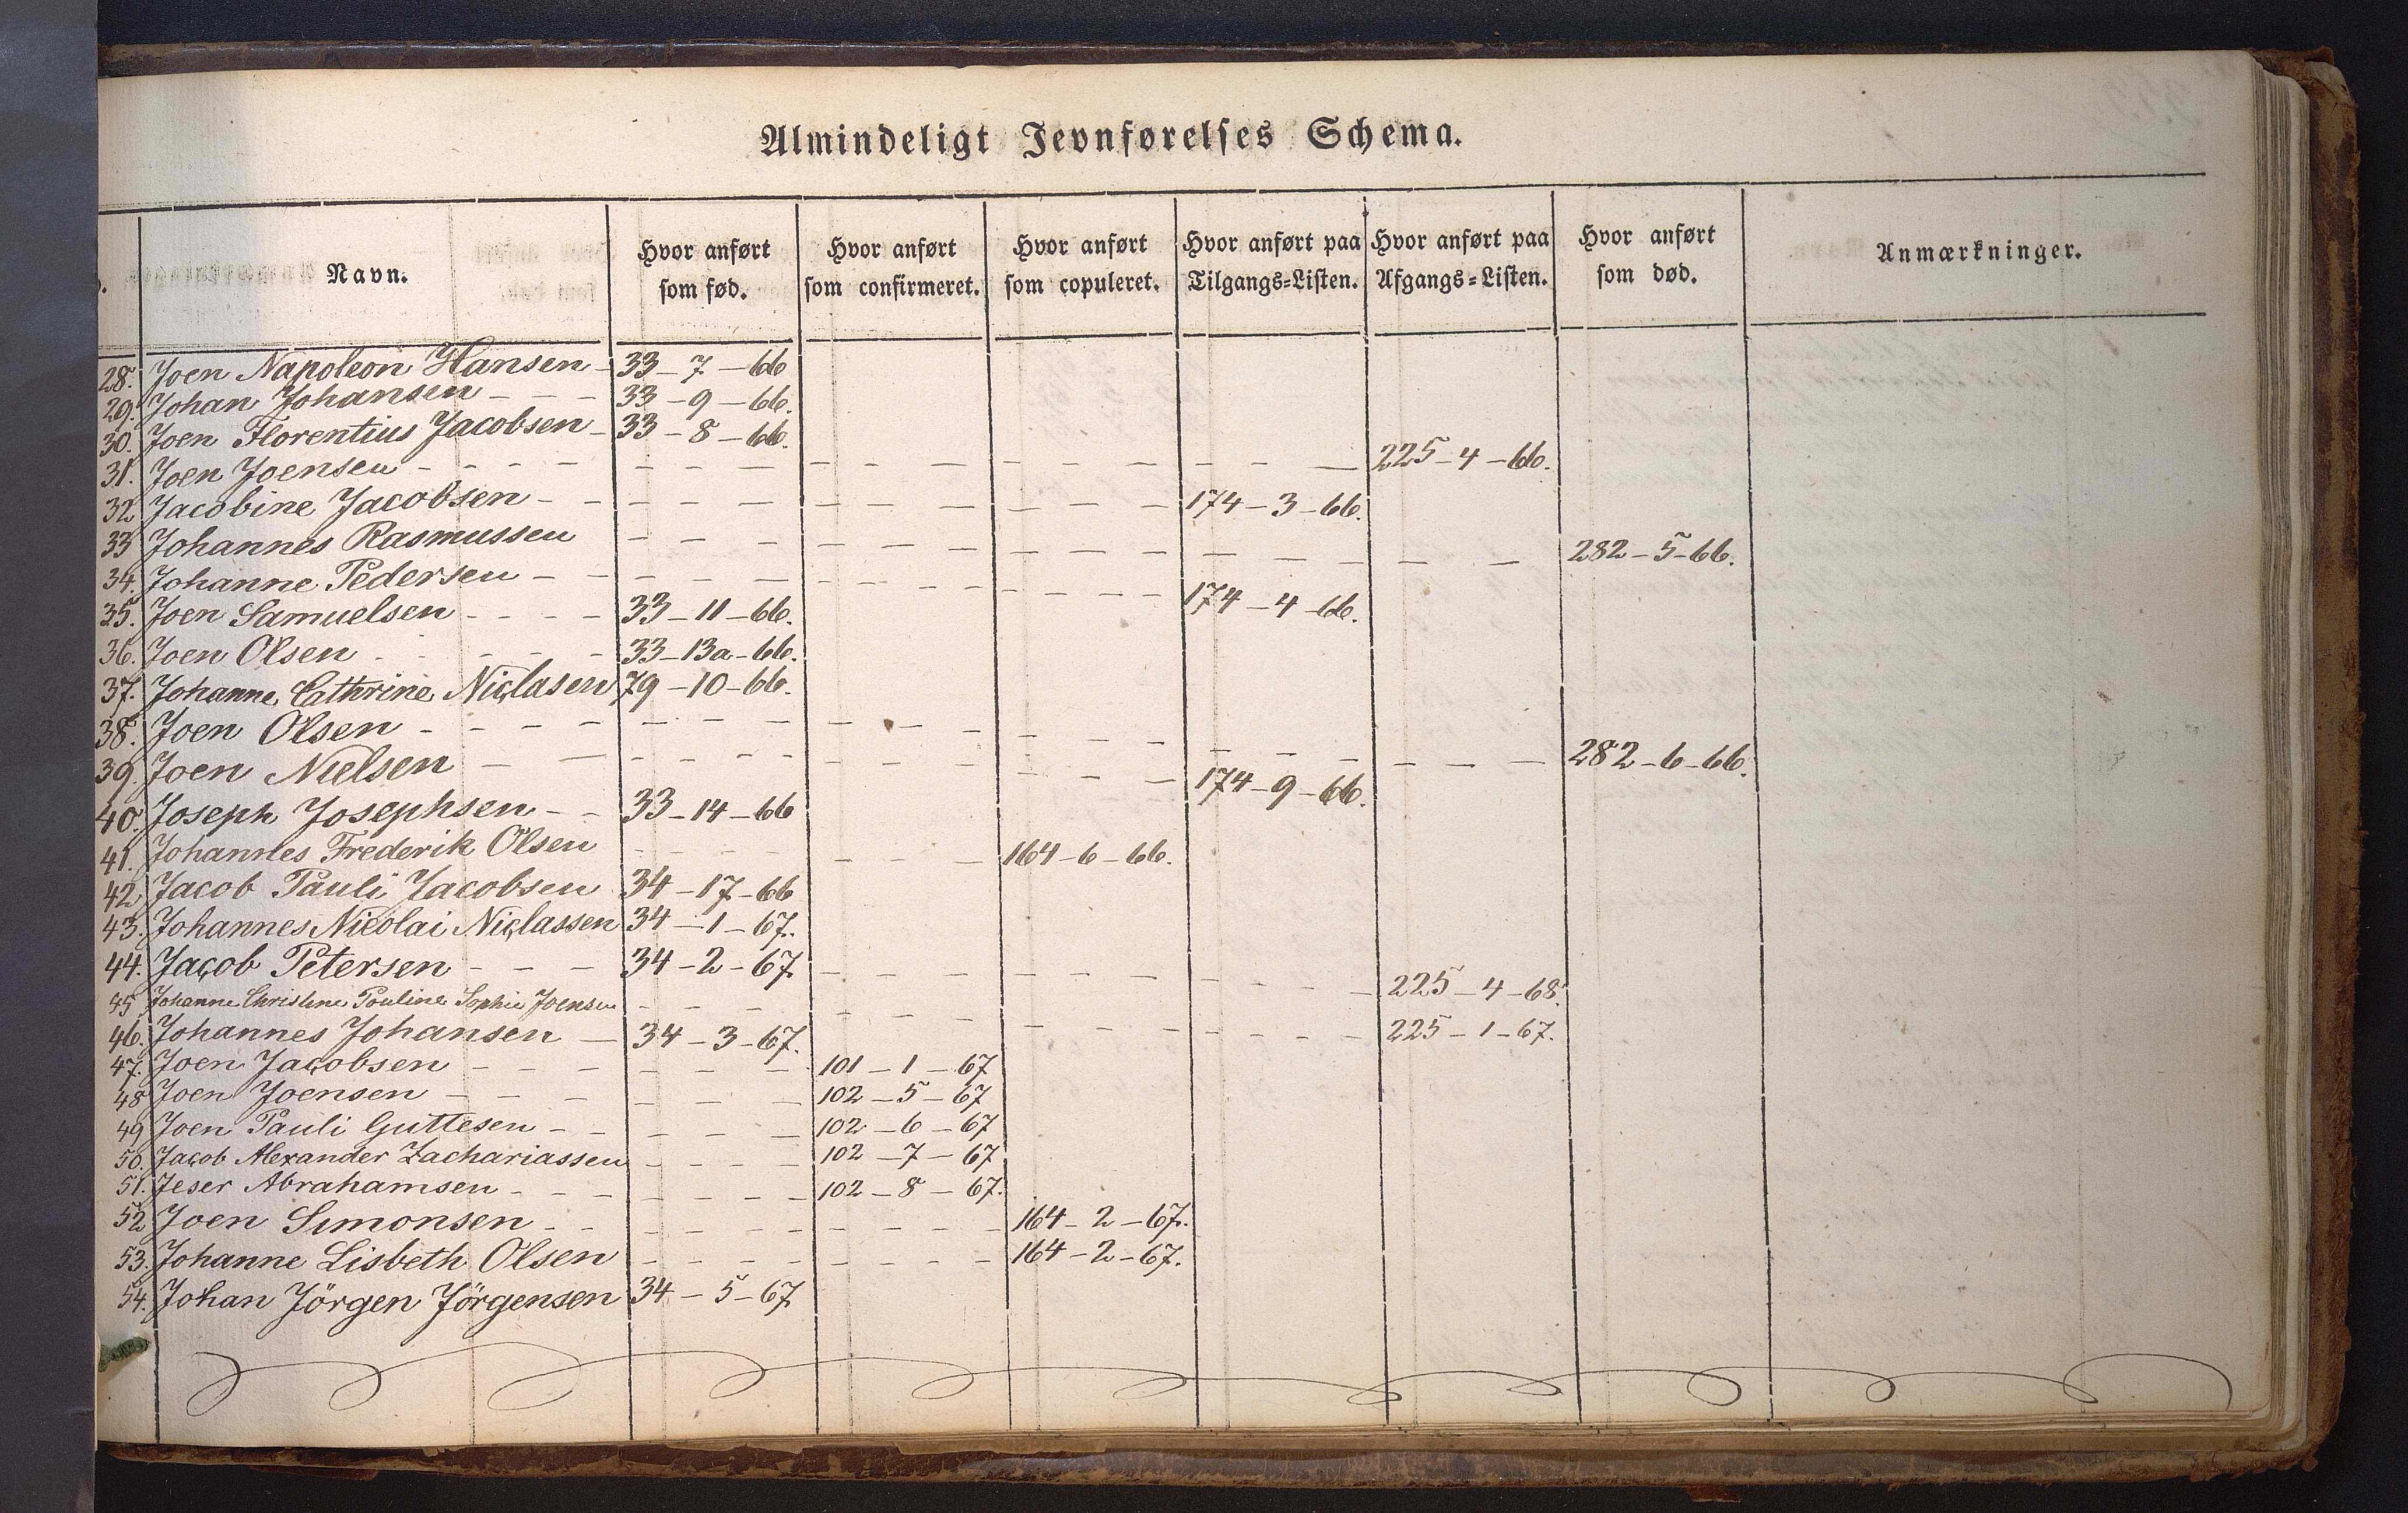 Almindeligt Jevnførelses Schema.
Navn. Hvor anført som fød. Hvor anført som confirmeret. Hvor anført som copuleret. Hvor anført paa Tilgangs-Listen. Hvor anført paa Afgangs-Listen. Hvor anført som død. Anmærkninger.
28. Joen Napoleon Hansen - 33 - 7 - 66
29. Johan Johansen - - - 33 - 9 - 66.
30. Joen Florentius Jacobsen - 33 - 8 - 66.
31. Joen Joensen - - - - 225 - 4 - 66.
32 Jacobine Jacobsen - - 174 - 3 - 66.
33 Johannes Rasmussen - - - 282 - 5 - 66.
34. Johanne Pedersen - - - 174 - 4 - 66.
35. Joen Samuelsen - - - - 33 - 11 - 66.
36. Joen Olsen - - - - 33 - 13a - 66.
37. Johanne Cathrine Niclasen 79 - 10 - 66.
38. Joen Olsen - - - - 282 - 6 - 66.
39. Joen Nielsen - - - 174 - 9 - 66.
40. Joseph Josephsen - - 33 - 14 - 66
41. Johannes Frederik Olsen - - - 164 - 6 - 66.
42. Jacob Pauli Jacobsen 34 - 17 - 66
43. Johannes Nicolai Niclassen 34 - 1 - 67.
44. Jacob Petersen - - - 34 - 2 - 67 - - - 225 - 4 - 68.
45 Johanne Christine Pouline Sophie Joensen - - - 225 - 1 - 67.
46. Johannes Johansen - 34 - 3 - 67.
47. Joen Jacobsen - - - - 101 - 1 - 67
48 Joen Joensen - - - - 102 - 5 - 67
49 Joen Pauli Guttesen - - 102 - 6 - 67
50. Jacob Alexander Zachariassen - - - 102 - 7 - 67
51. Jeser Abrahamsen - - - 102 - 8 - 67.
52 Joen Simonsen - - - 164 - 2 - 67.
53. Johanne Lisbeth Olsen - - - 164 - 2 - 67.
54. Johan Jörgen Jörgensen 34 - 5 - 67